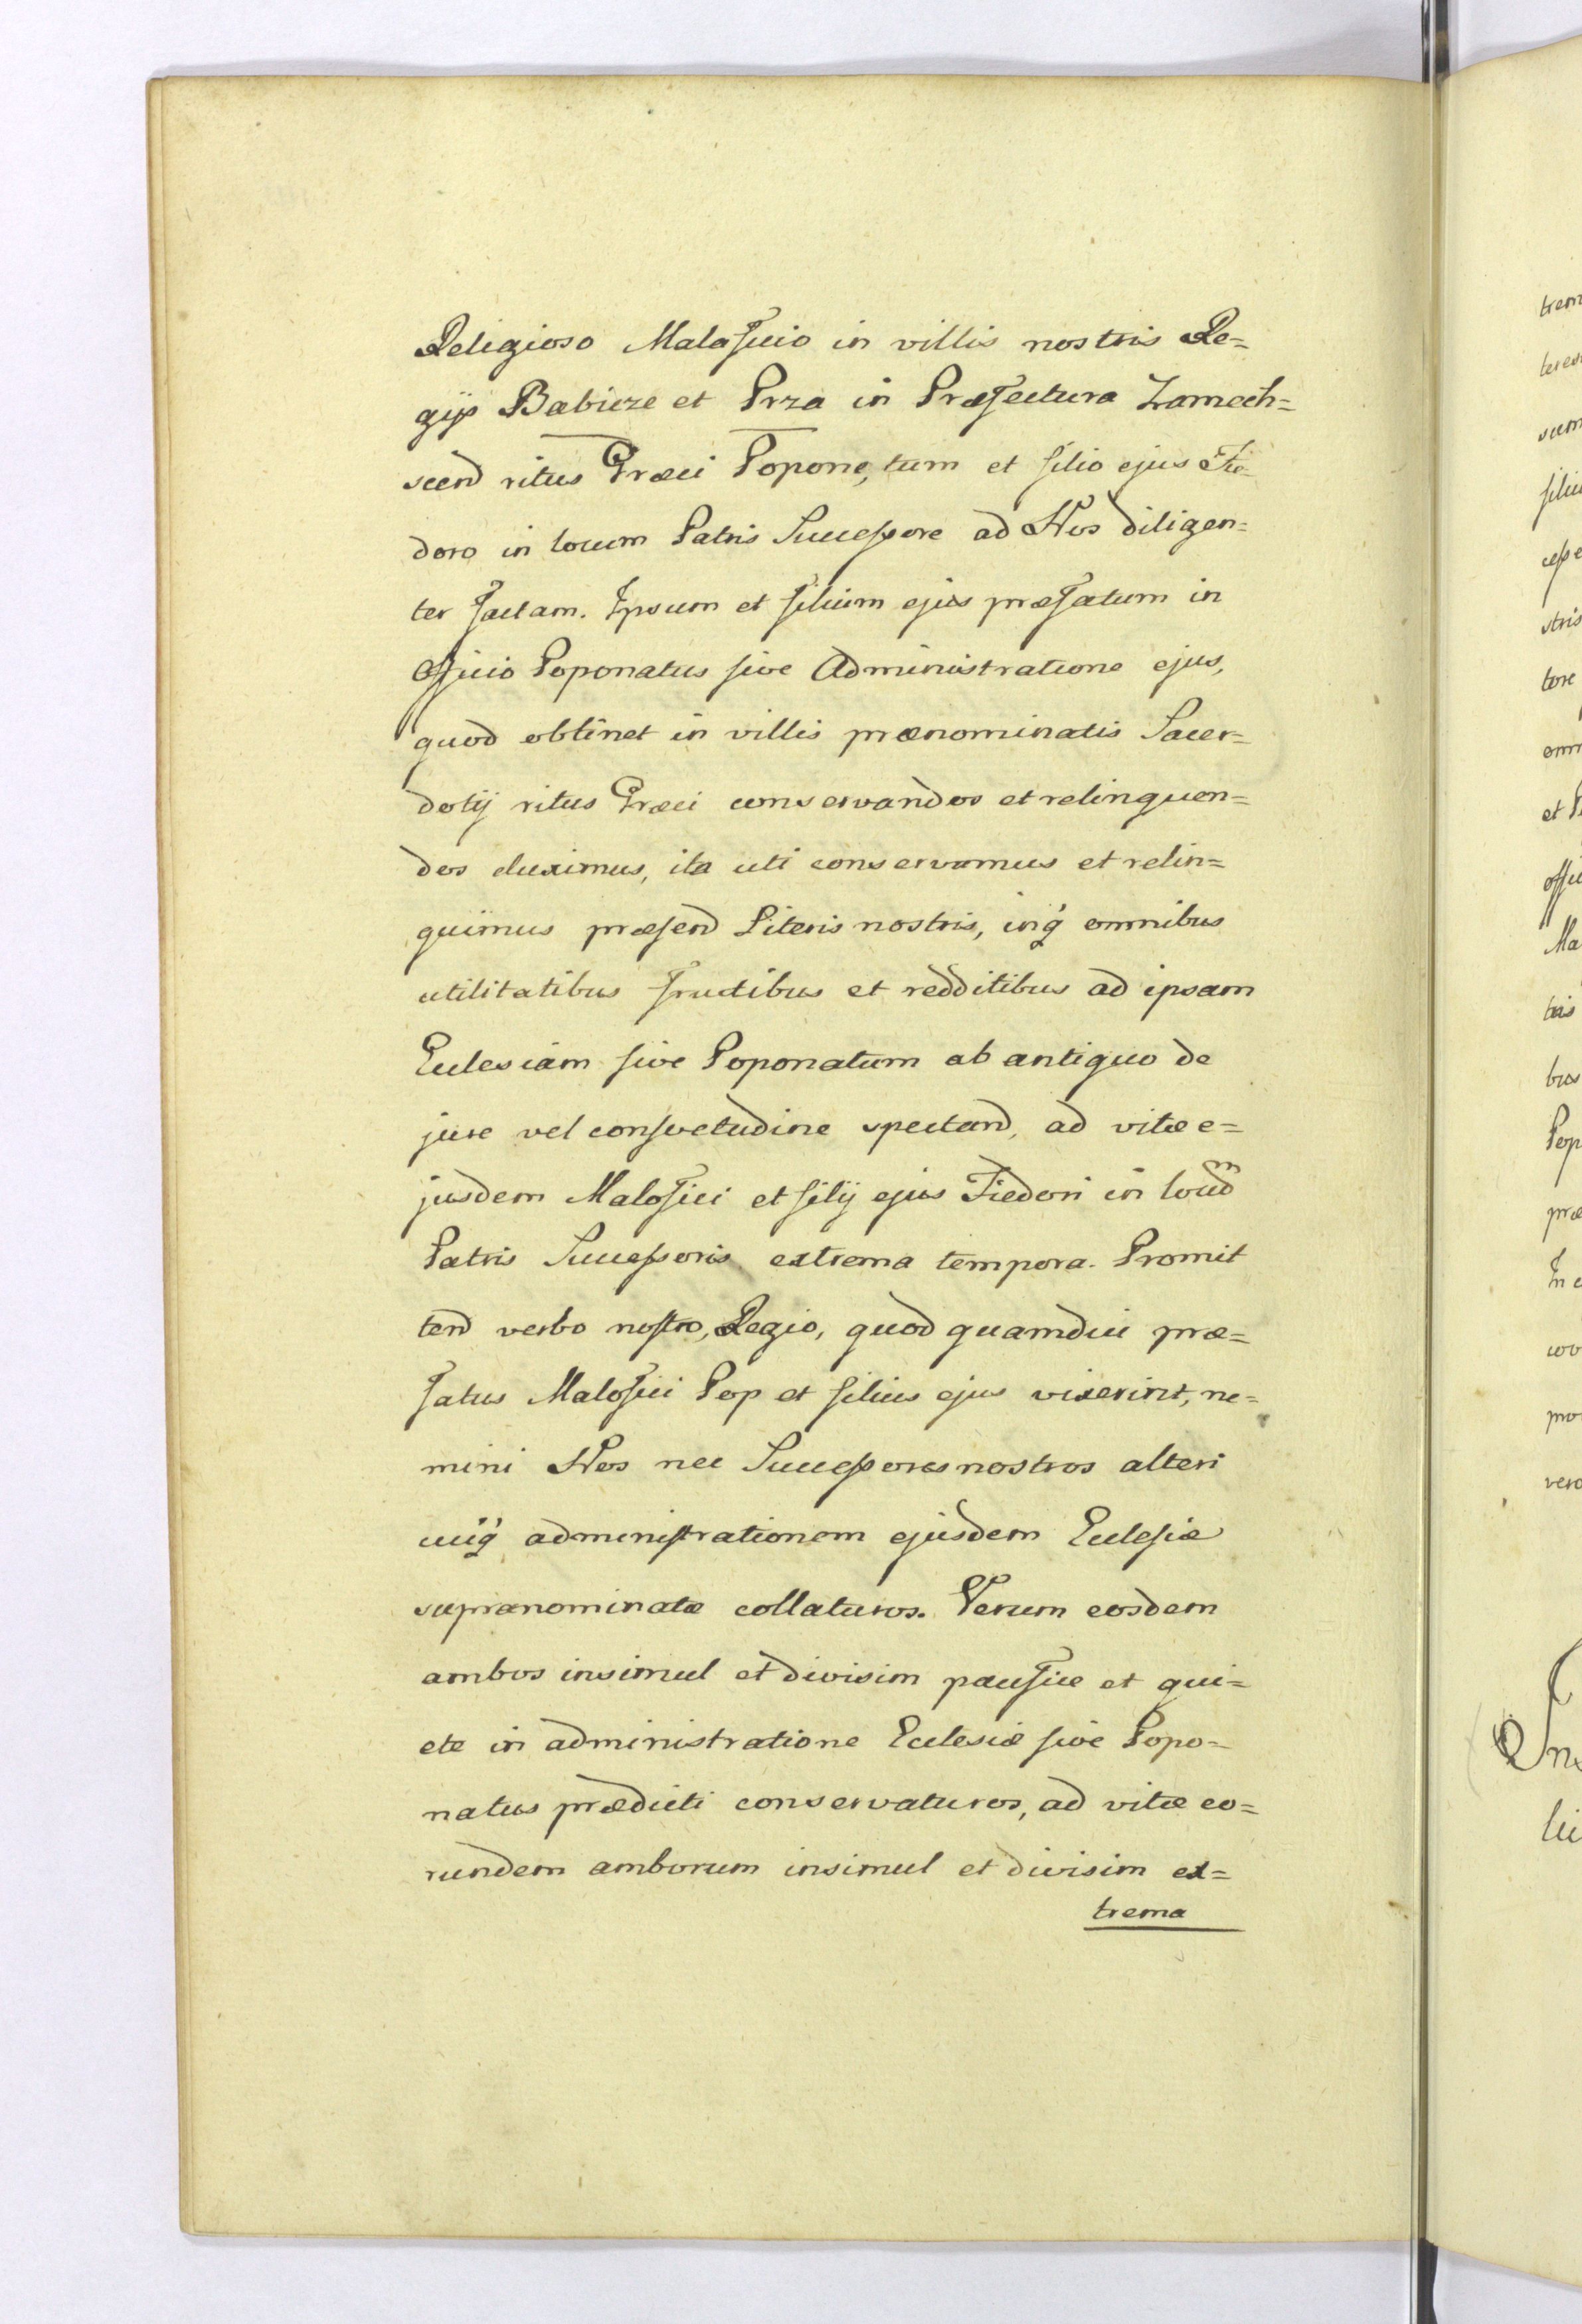 Religioso Malofiiio in villis nostris Re=
gijs Babicze et Prza in Præfectura Zamech=
scend ritus Græci Popone, tum et filio ejus Fie=
doro in locum Patris Successore ad Nos diligen=
ter factam. Ipsum et filium ejus præfatum in
Officio Poponatus sive Administratione ejus,
quod obtinet in villis prænominatis Sacer=
dotij ritus Græci conservandos et relinquen=
dos duximus, ita uti conservamus et relin=
quimus præsend Literis nostris, inq omnibus
utilitatibus fructibus et redditibus ad ipsam
Ecclesiam sive Poponatum ab antiquo de
jure vel consvetudine spectand, ad vitæ e=
jusdem Malofiei et filij ejus Fiedori in locum
Patris Successoris extrema tempora. Promit
tend verbo nostro, Regio, quod quamdiu præ=
fatus Malofiei Pop et filius ejus vixerint, ne=
mini Nos nec Successores nostros alteri
cuiq administrationem ejusdem Ecclesiæ
supranominatæ collaturos. Verum eosdem
ambos insimul et divisim pacifice et qui=
ete in administratione Ecclesiæ sive Popo=
natus prædicti conservaturos, ad vitæ eo=
rundem amborum insimul et divisim ex=
trema
trem
sum
filiu
stris
tore
omn
et P
offic
Ma
bus
Pop
præ
In e
pro
vero
In